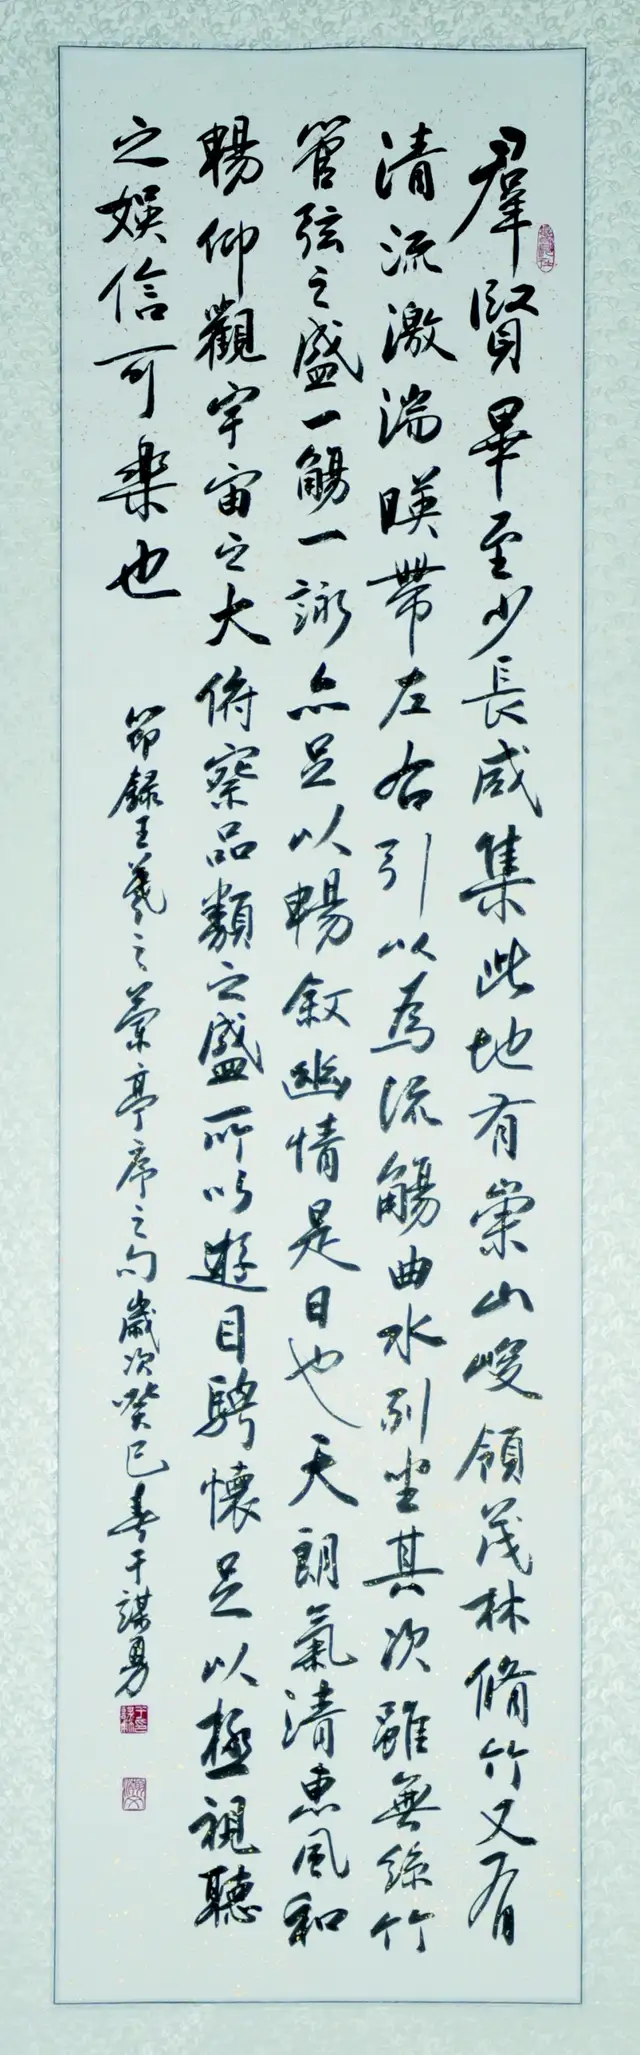 羣賢畢至少長咸集此地有崇山峻領茂林脩竹又有
清流激湍暎帶左右引以為流觴曲水列坐其次雖無絲竹
管弦之盛一觴一詠亦足以暢敘幽情是日也天朗氣清惠風和
暢仰觀宇宙之大俯察品類之盛所以遊目騁懷足以極視聽
之娛信可樂也
節録王羲之蘭亭序之句歲次癸巳春于謀勇